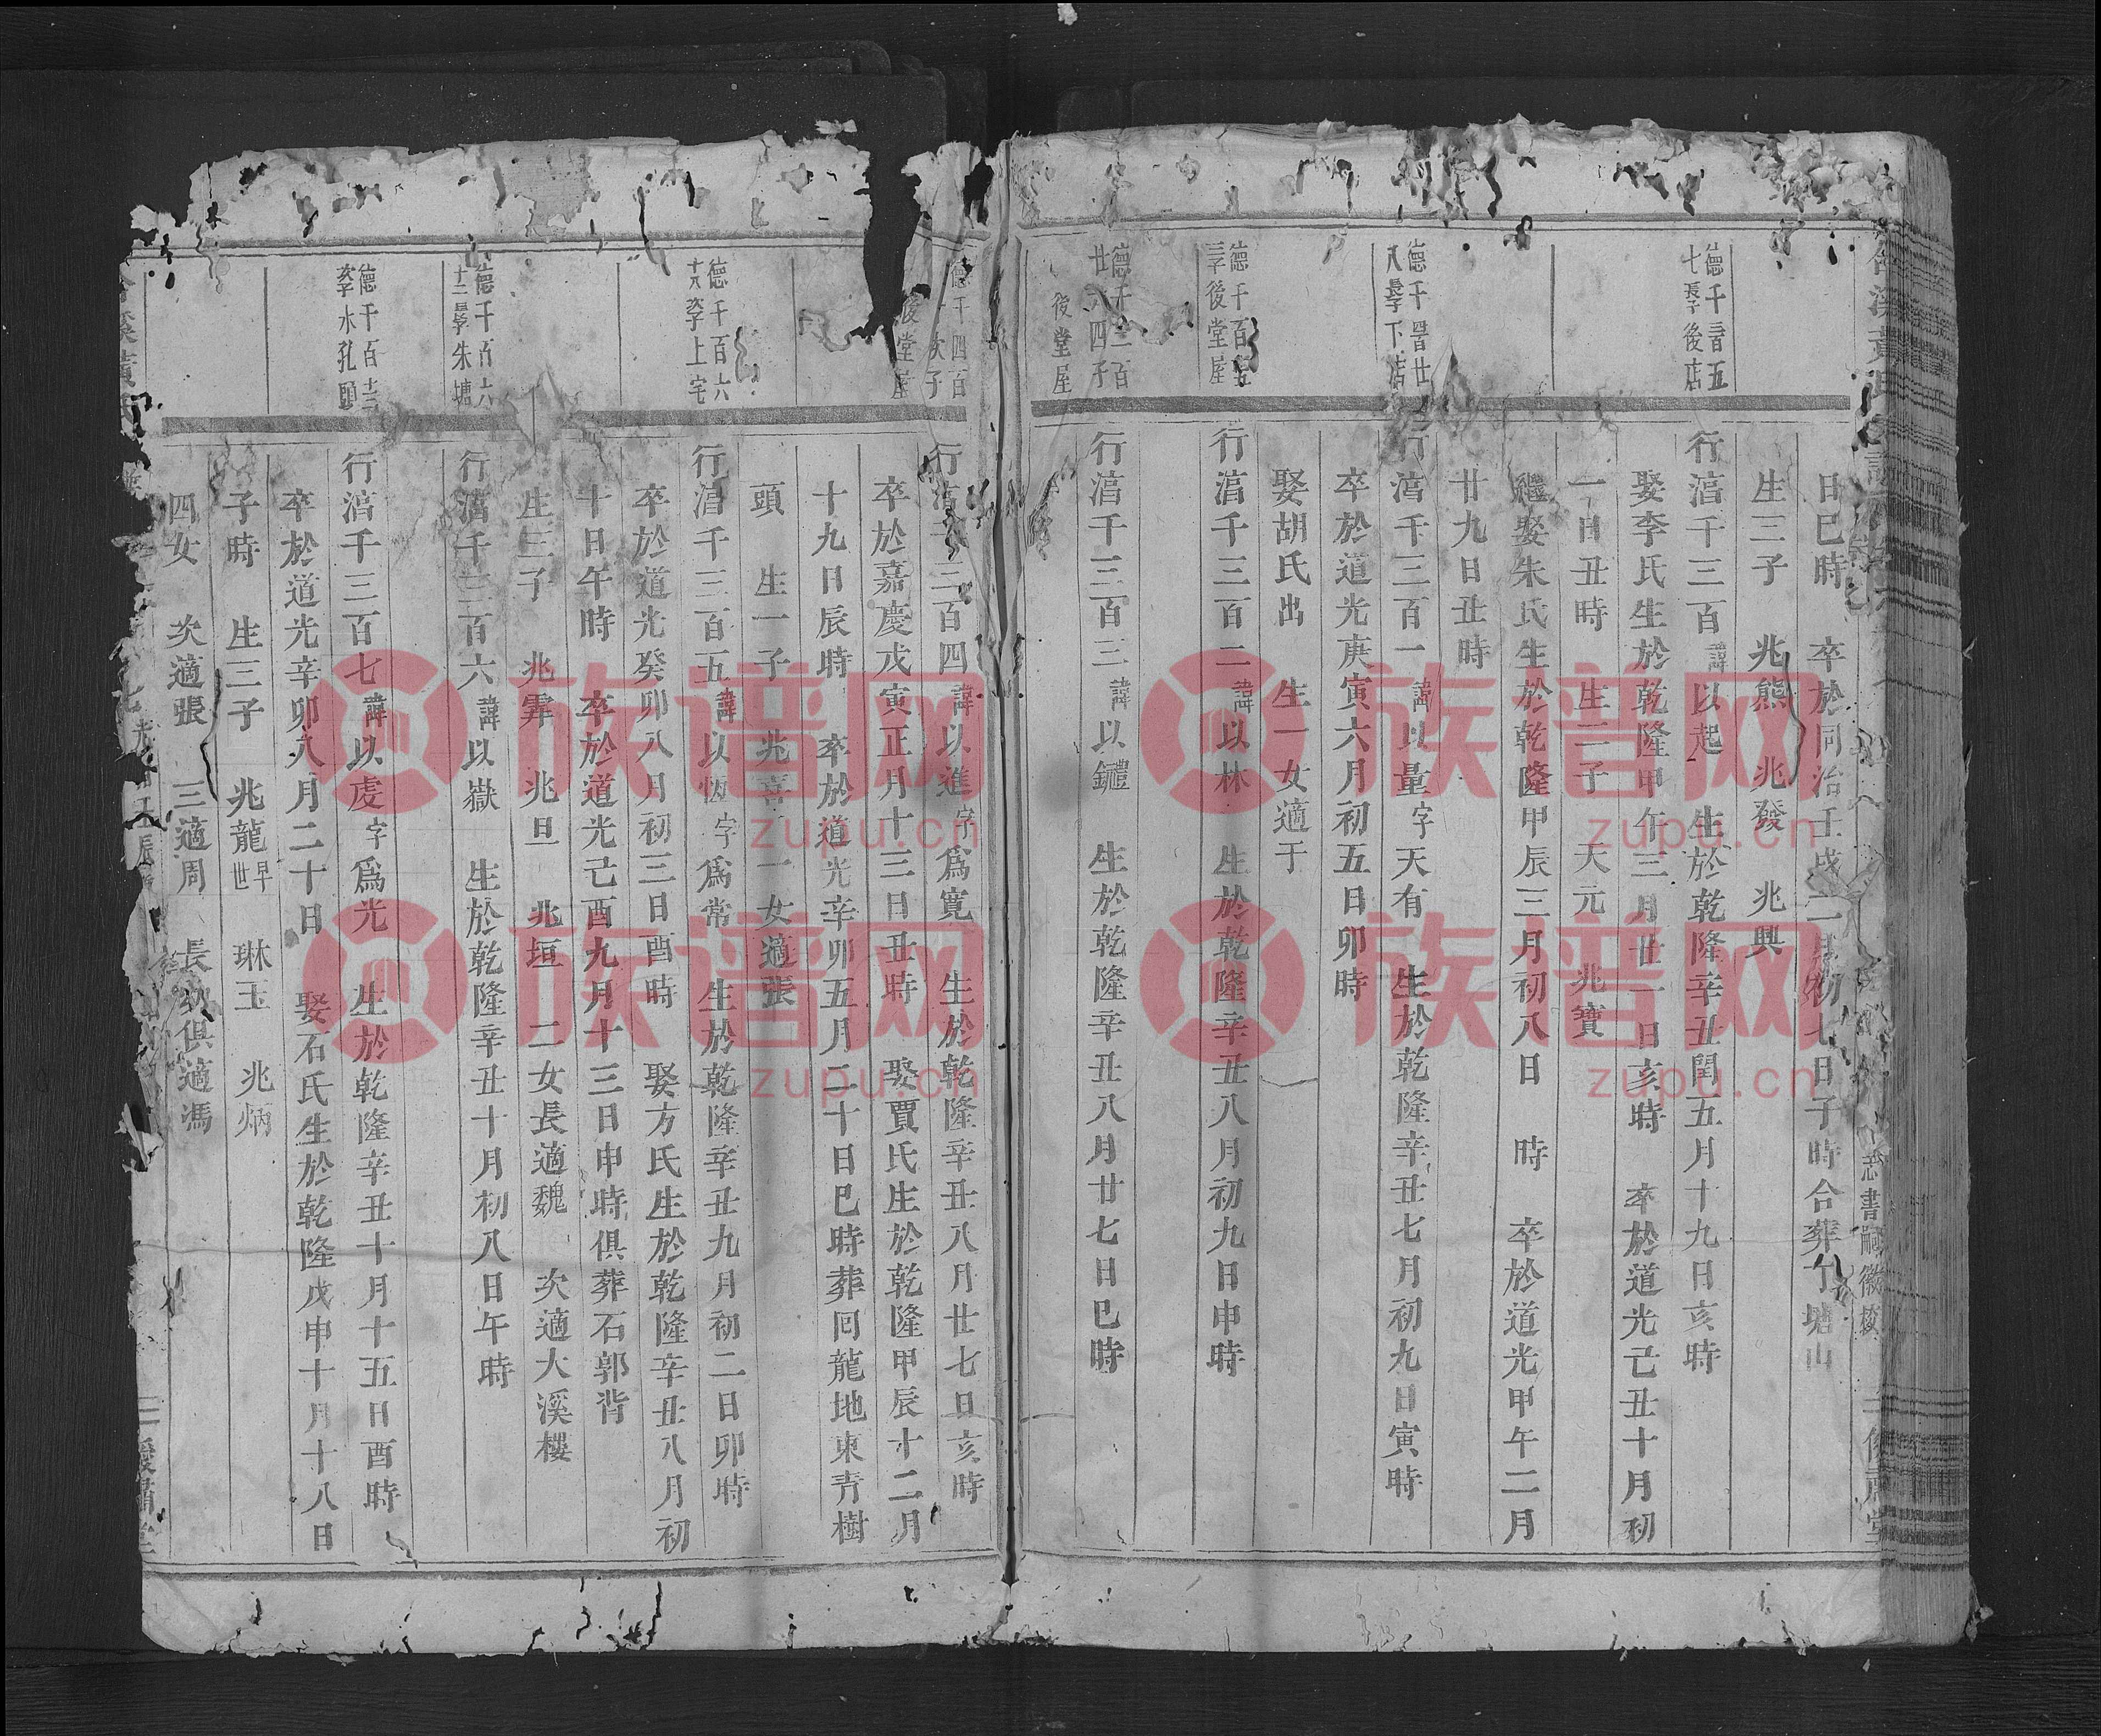 日巳時　卒於同治壬戌二月初七日子時合葬下塘山
生三子　兆熊　兆發　兆興
德千三百五
七長子後店
行湻千三百諱以起　生於乾隆辛丑閏五月十九日亥時
娶李氏生於乾隆甲午三月廿一日亥時　卒於道光己丑十月初
一日丑時　生二子　天元　兆寶
繼娶朱氏生於乾隆甲辰三月初八日　時　卒於道光甲午二月
廿九日丑時
德千四百廿
八長子下店
行湻千三百一諱以量字天有　生於乾隆辛丑七月初九日寅時
卒於道光庚寅六月初五日卯時
娶胡氏出　生一女適于
德千百五
三子後堂屋
行湻千三百二諱以林　生於乾隆辛丑八月初九日申時
德千三百
廿八四子
後堂屋
行湻千三百三諱以鑓　生於乾隆辛丑八月廿七日巳時
德千四百
次子
後堂屋
行湻千三百四諱以進字爲寬　生於乾隆辛丑八月廿七日亥時
卒於嘉慶戊寅正月十三日丑時　娶賈氏生於乾隆甲辰十二月
十九日辰時　卒於道光辛卯五月二十日巳時葬囘龍地東青樹
頭　生一子　兆喜　一女適張
德千百六
十八次子上宅
行湻千三百五諱以恆字爲常　生於乾隆辛丑九月初二日卯時
卒於道光癸卯八月初三日酉時　娶方氏生於乾隆辛丑八月初
十日午時　卒於道光己酉九月十三日申時俱葬石郭背
生三子　兆霽　兆旦　兆垣　二女長適魏　次適大溪樓
德千百六
十三長子朱塘
行湻千三百六諱以嶽　生於乾隆辛丑十月初八日午時
德千百十三
次子水孔頭
行湻千三百七諱以虔字爲光　生於乾隆辛丑十月十五日酉時
卒於道光辛卯八月二十日　娶石氏生於乾隆戊申十月十八日
子時　生三子　兆龍早世　琳玉　兆炳
四女　次適張　三適周　長幼俱適馮
族谱网
zupu.cn
族谱网
zupu.cn
族谱网
zupu.cn
族谱网
zupu.cn